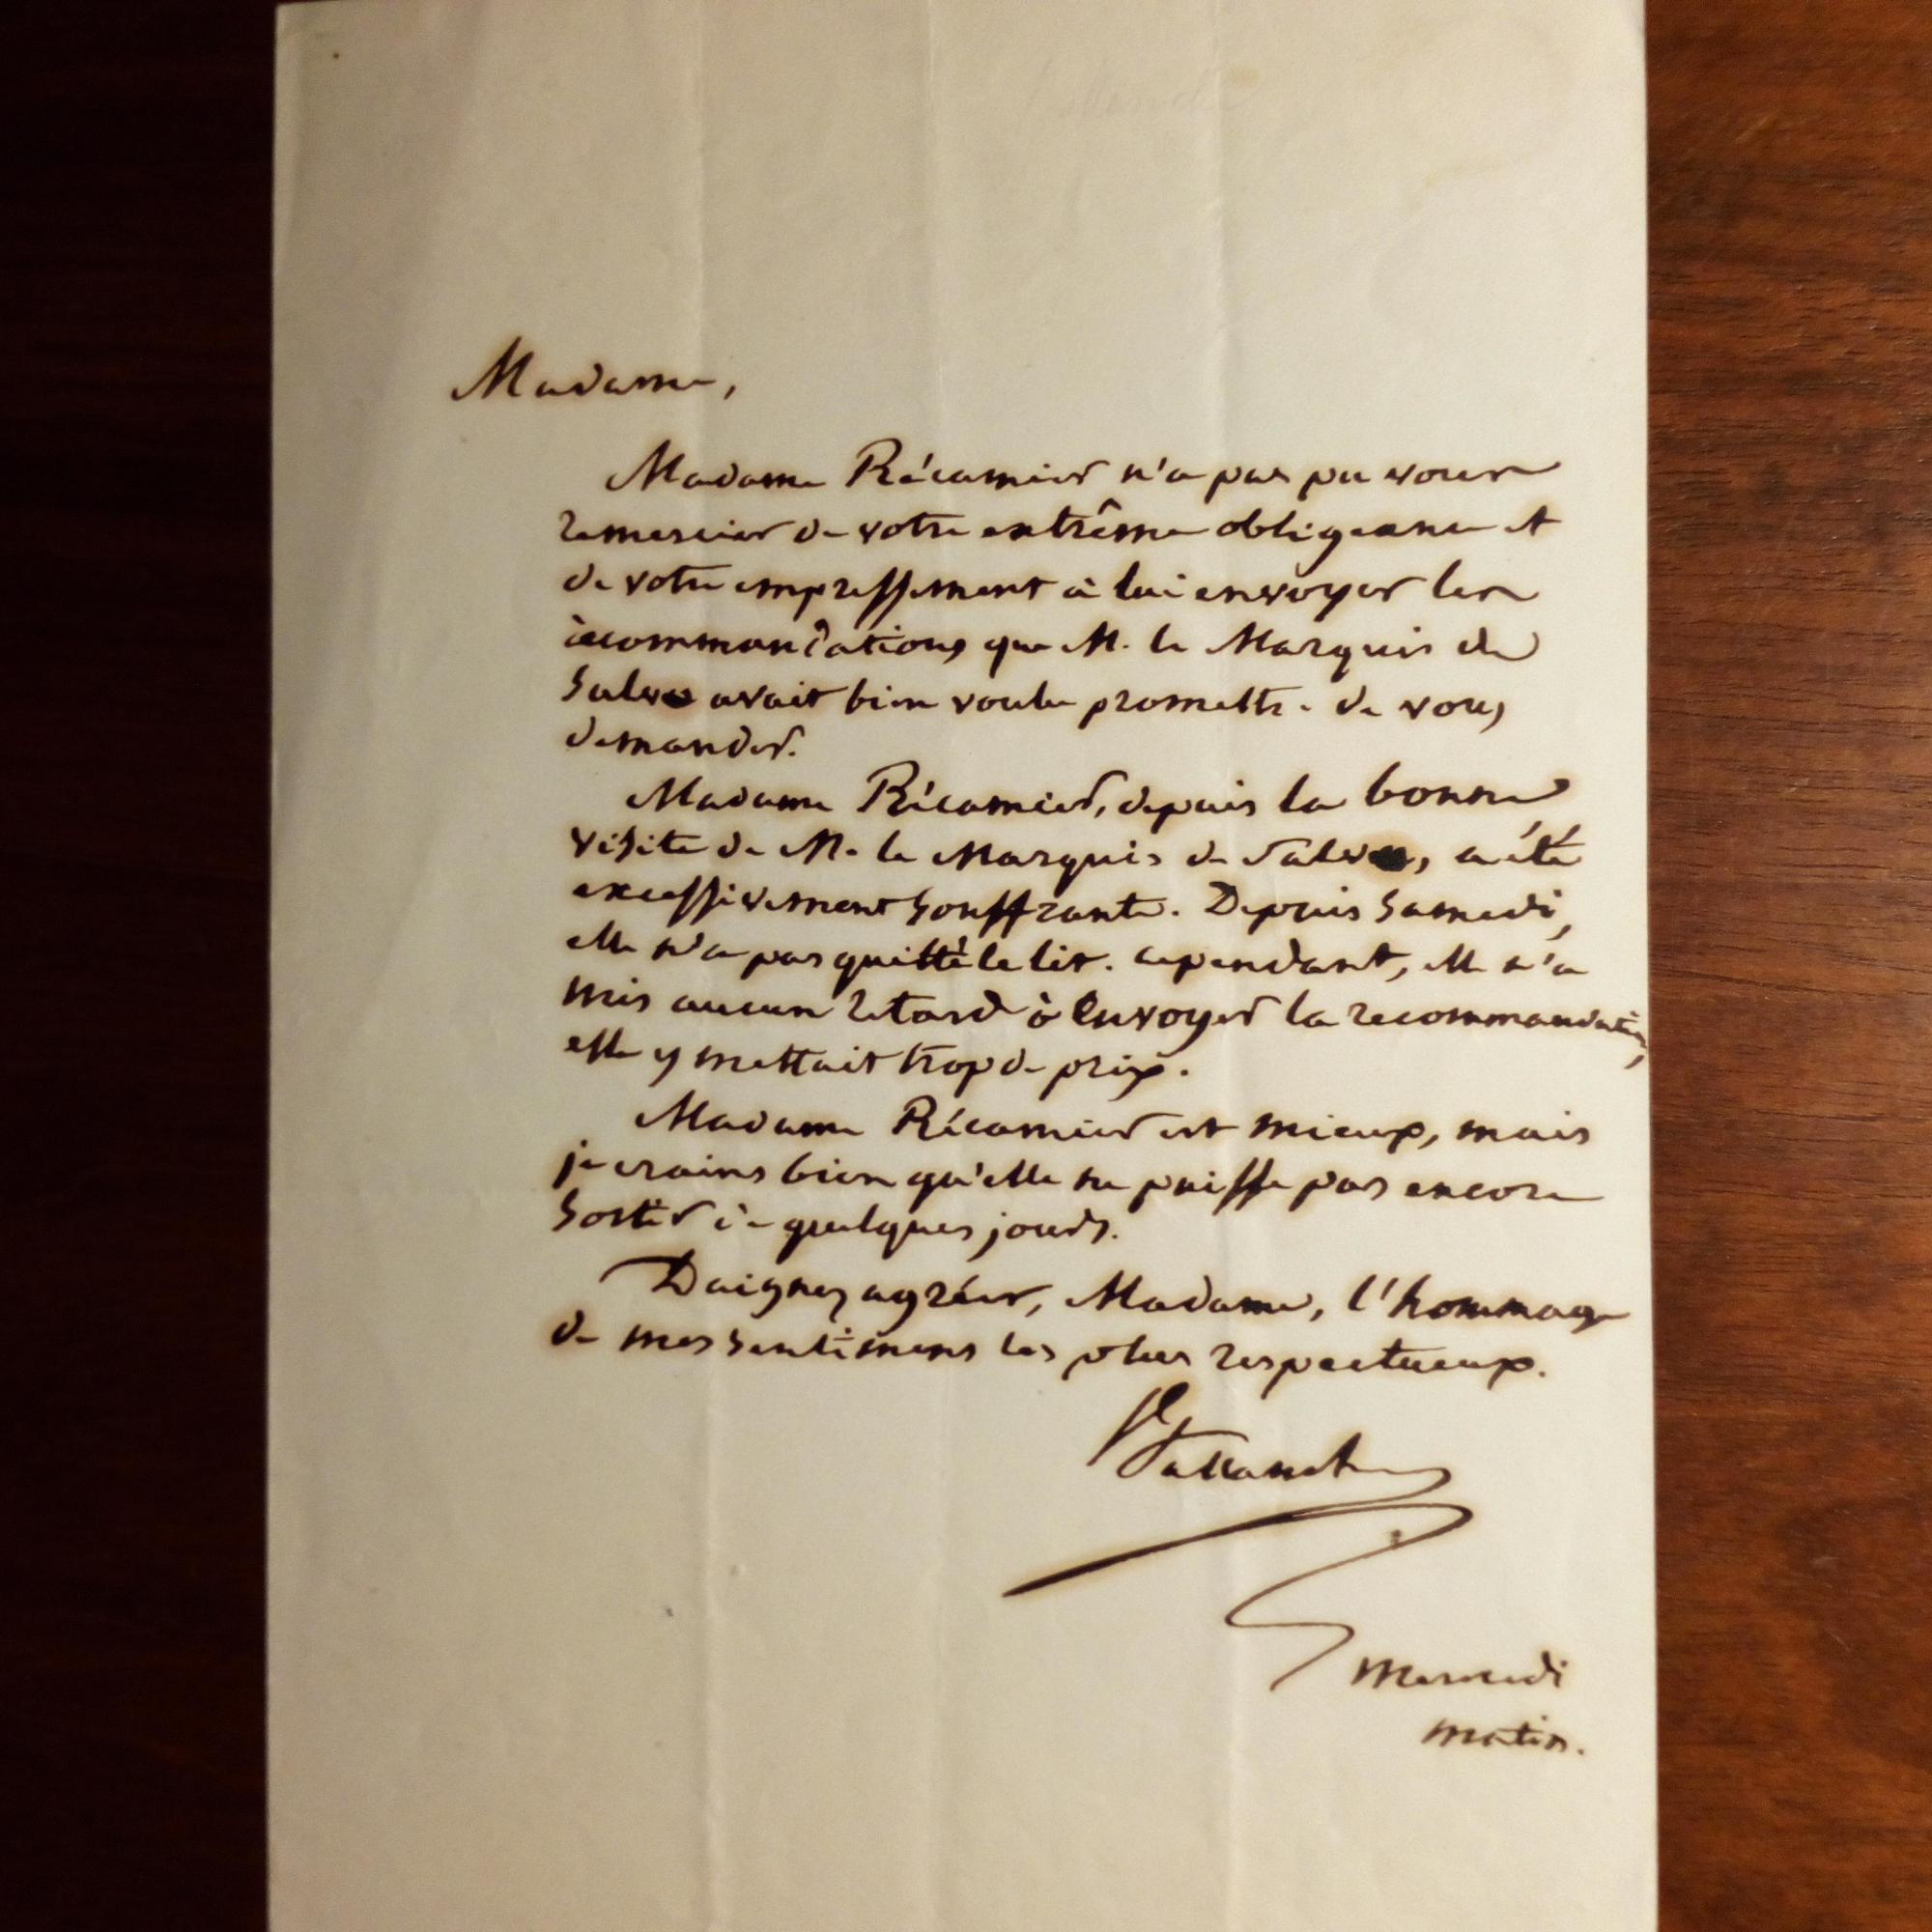 Madame,
Madame Récamier n'a pas pu vous
remercier de votre extrême obligeance et
de votre empressement à lui envoyer les
recommandations que M. le Marquis de
Salvo avait bien voulu promettre de vous
demander.
Madame Récamier, depuis la bonne
visite de M. le Marquis de Salvo, a été
excessivement souffrante. Depuis samedi,
elle n'a pas quitté le lit. cependant, elle n'a
mis aucun retard à envoyer la recommandation,
elle y mettait trop de prix.
Madame Récamier est mieux, mais
je crains bien qu'elle ne puisse pas encore
sortir de quelques jours.
Daignez agréer, Madame, l'hommage
de mes sentimens les plus respectueux.
Ballanche
Mercredi
matin.